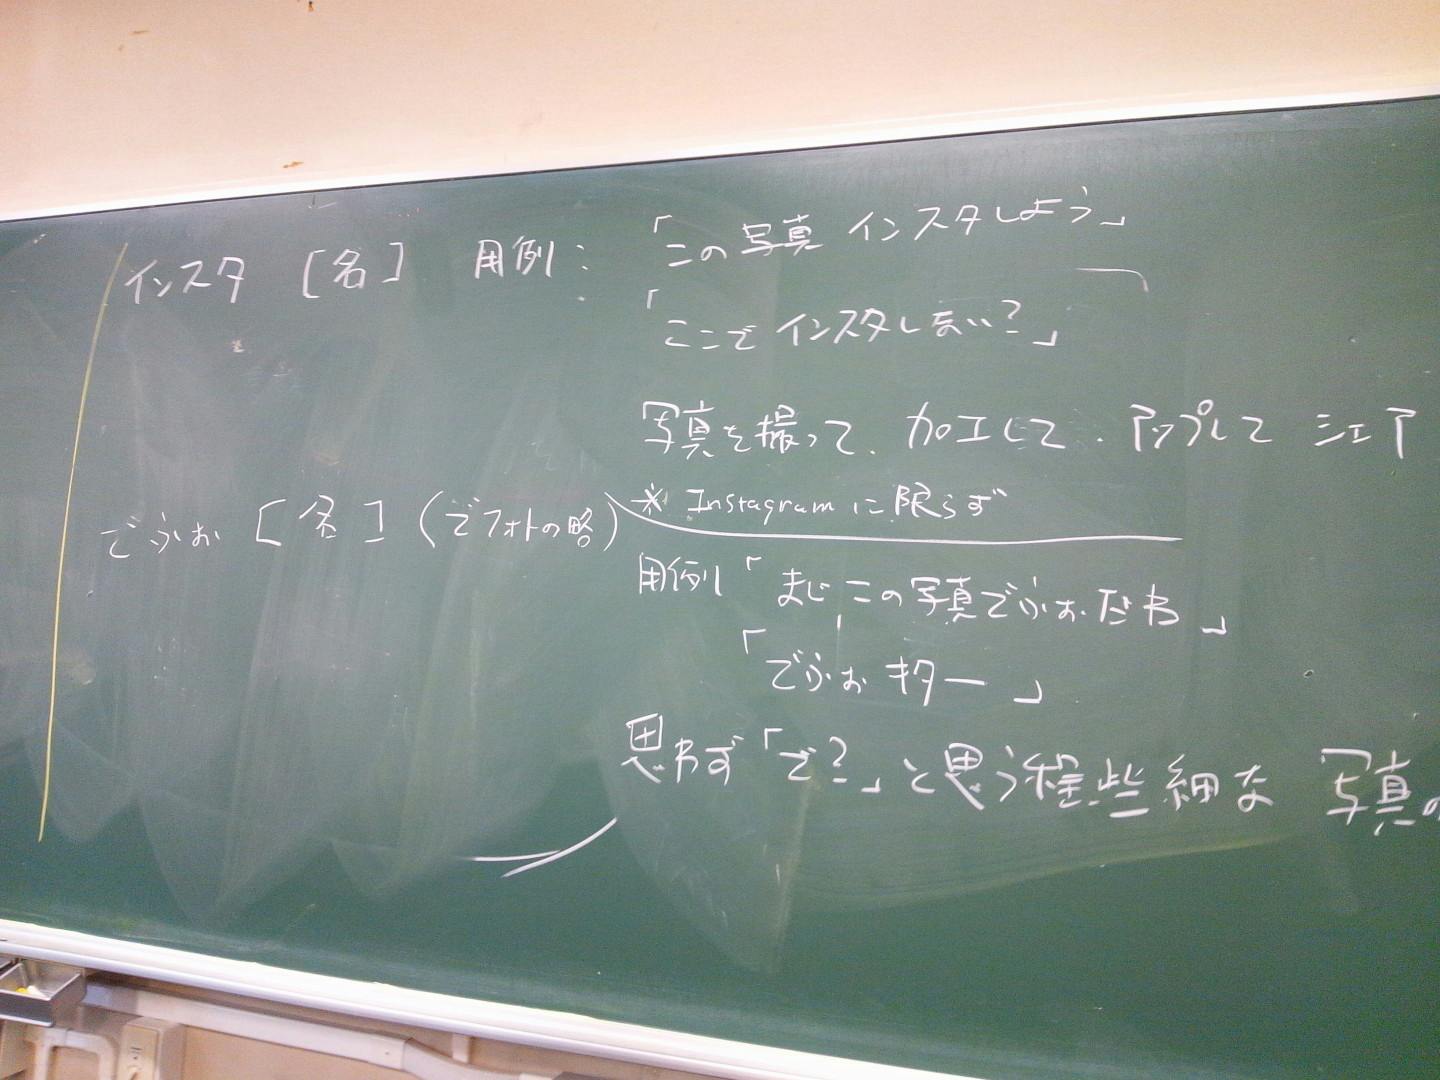 インスタ [名] 用例：「この写真 インスタしよう」
「ここで インスタしない?」
写真を撮って、加工して、アップして シェア
※ Instagram に限らず
でふぉ [名] (でフォトの略)
用例「まじこの写真でふぉだわ」
「でふぉ キター」
思わず「で?」と思う程些細な 写真の